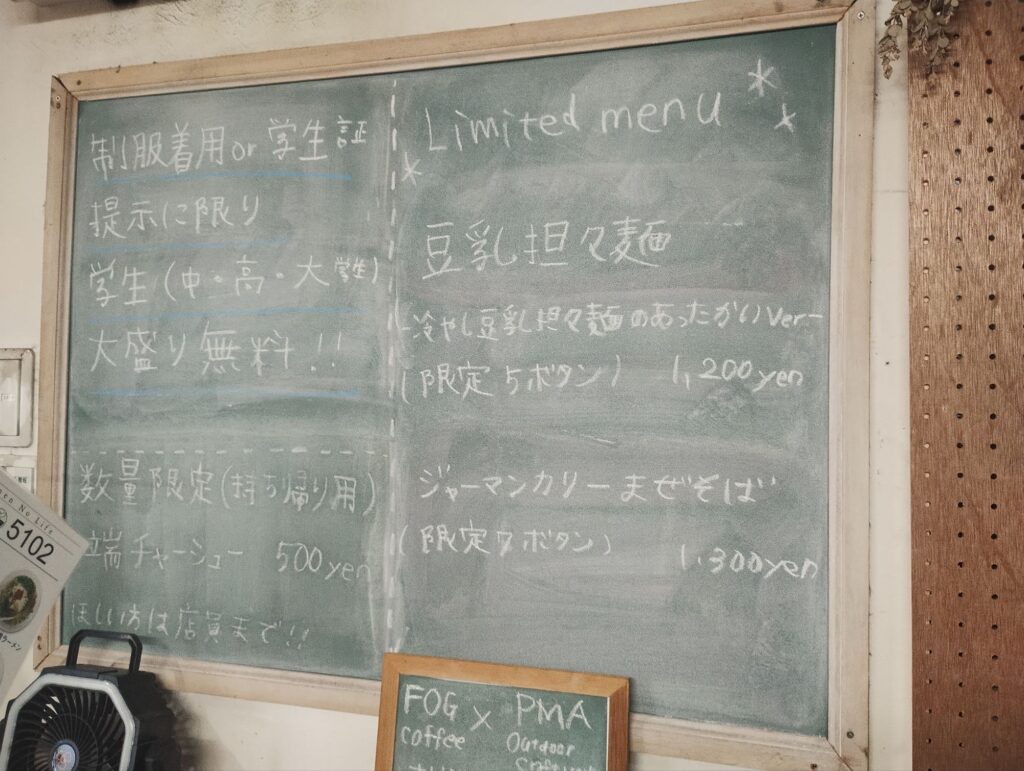 制服着用or学生証
提示に限り
学生(中・高・大学生)
大盛り無料!!
数量限定(持ち帰り用)
端チャーシュー 500yen
ほしい方は店員まで!!
Limited menu
豆乳担々麺
-冷やし豆乳担々麺のあったかいVer-
(限定5ボタン) 1,200yen
ジャーマンカリーまぜそば
(限定7ボタン)
1,300yen
No Life
5102
ラーメン
FOG × PMA
coffee Outdoor